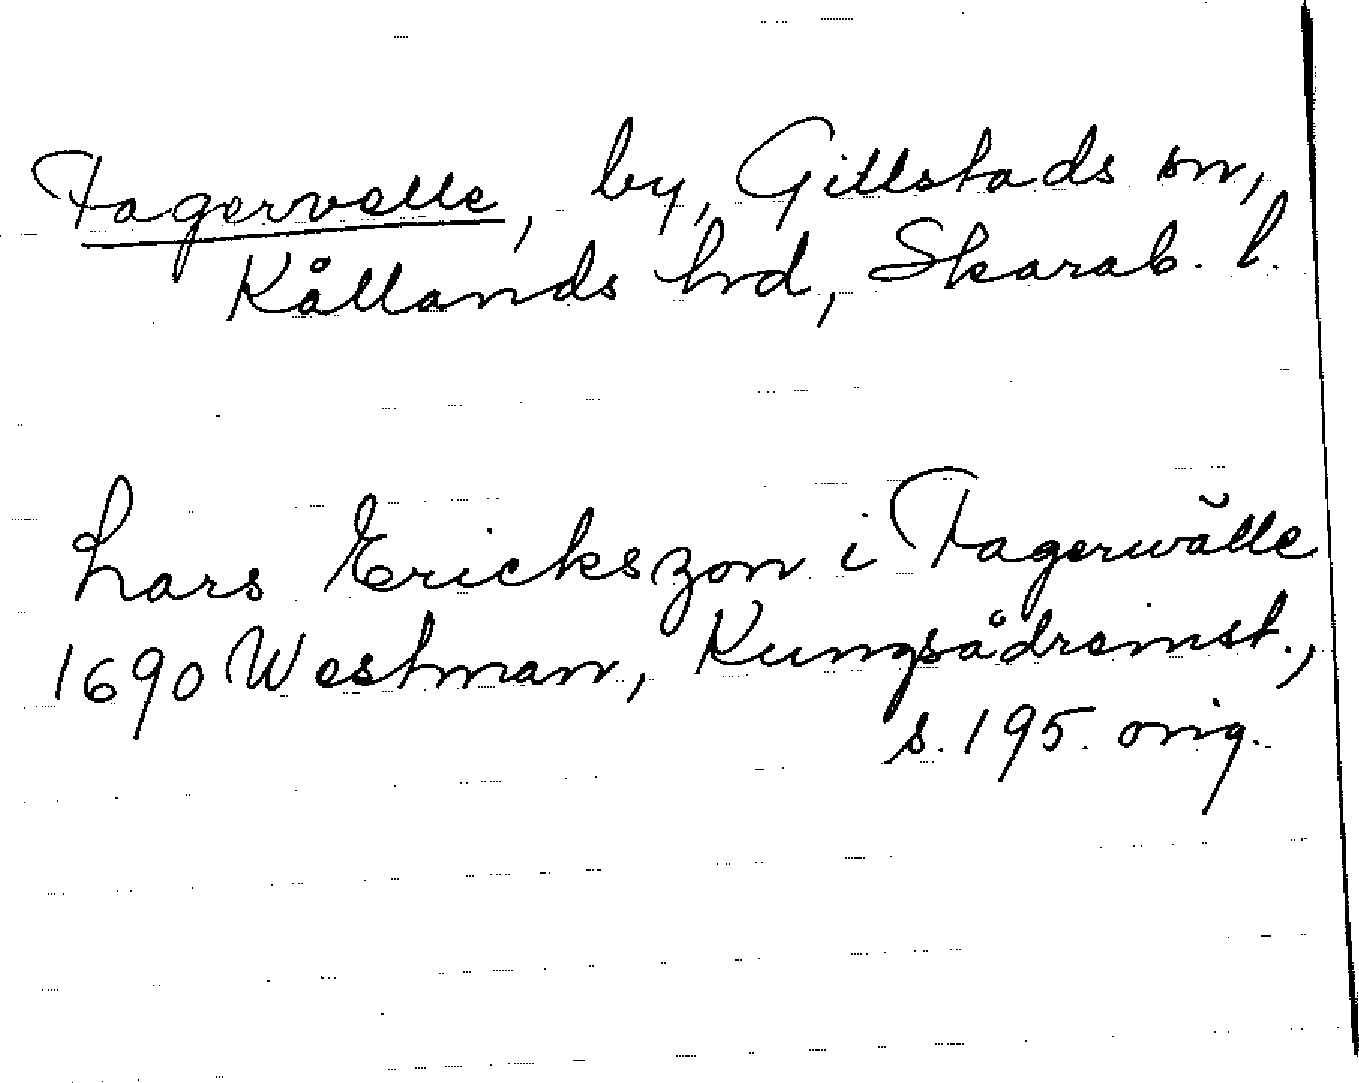 Fagervelle, by, Gillstads sn,
Kållands hrd, Skarab. l.
Lars Erickszon i Fagerwälle
1690 Westman, Kungsådremst.,
s. 195. orig.